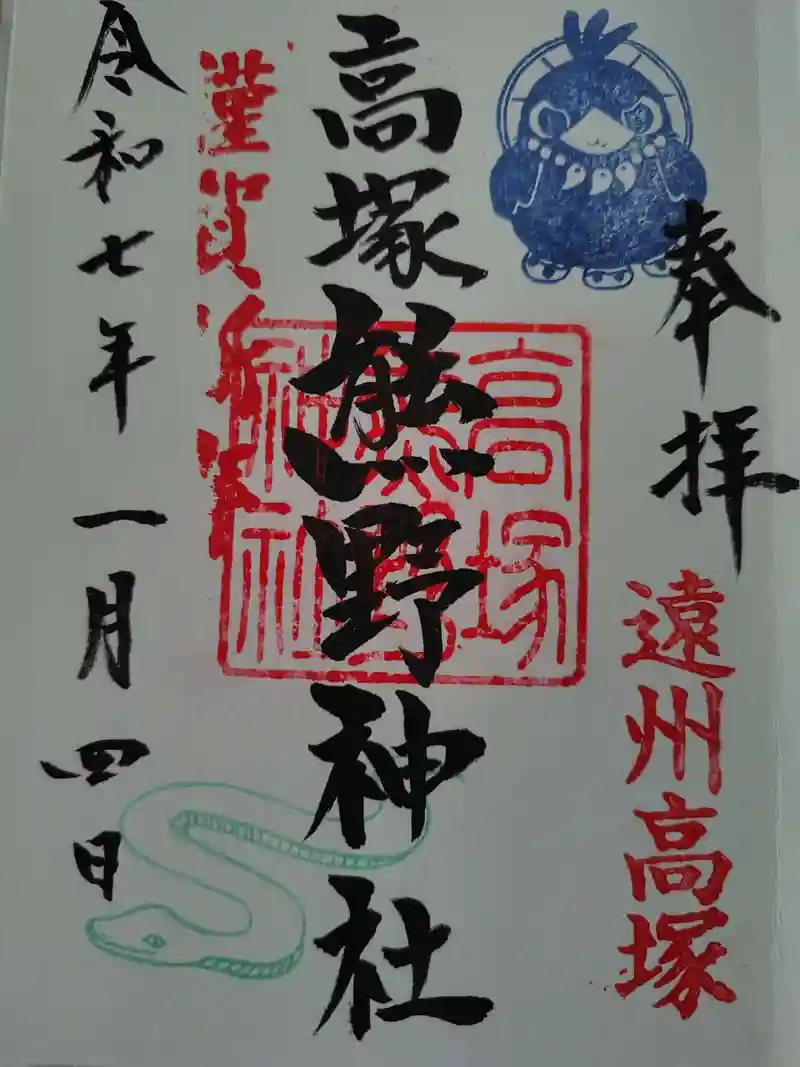 奉拝
遠州高塚
高塚熊野神社
高塚熊野神社
謹賀新年
令和七年一月四日